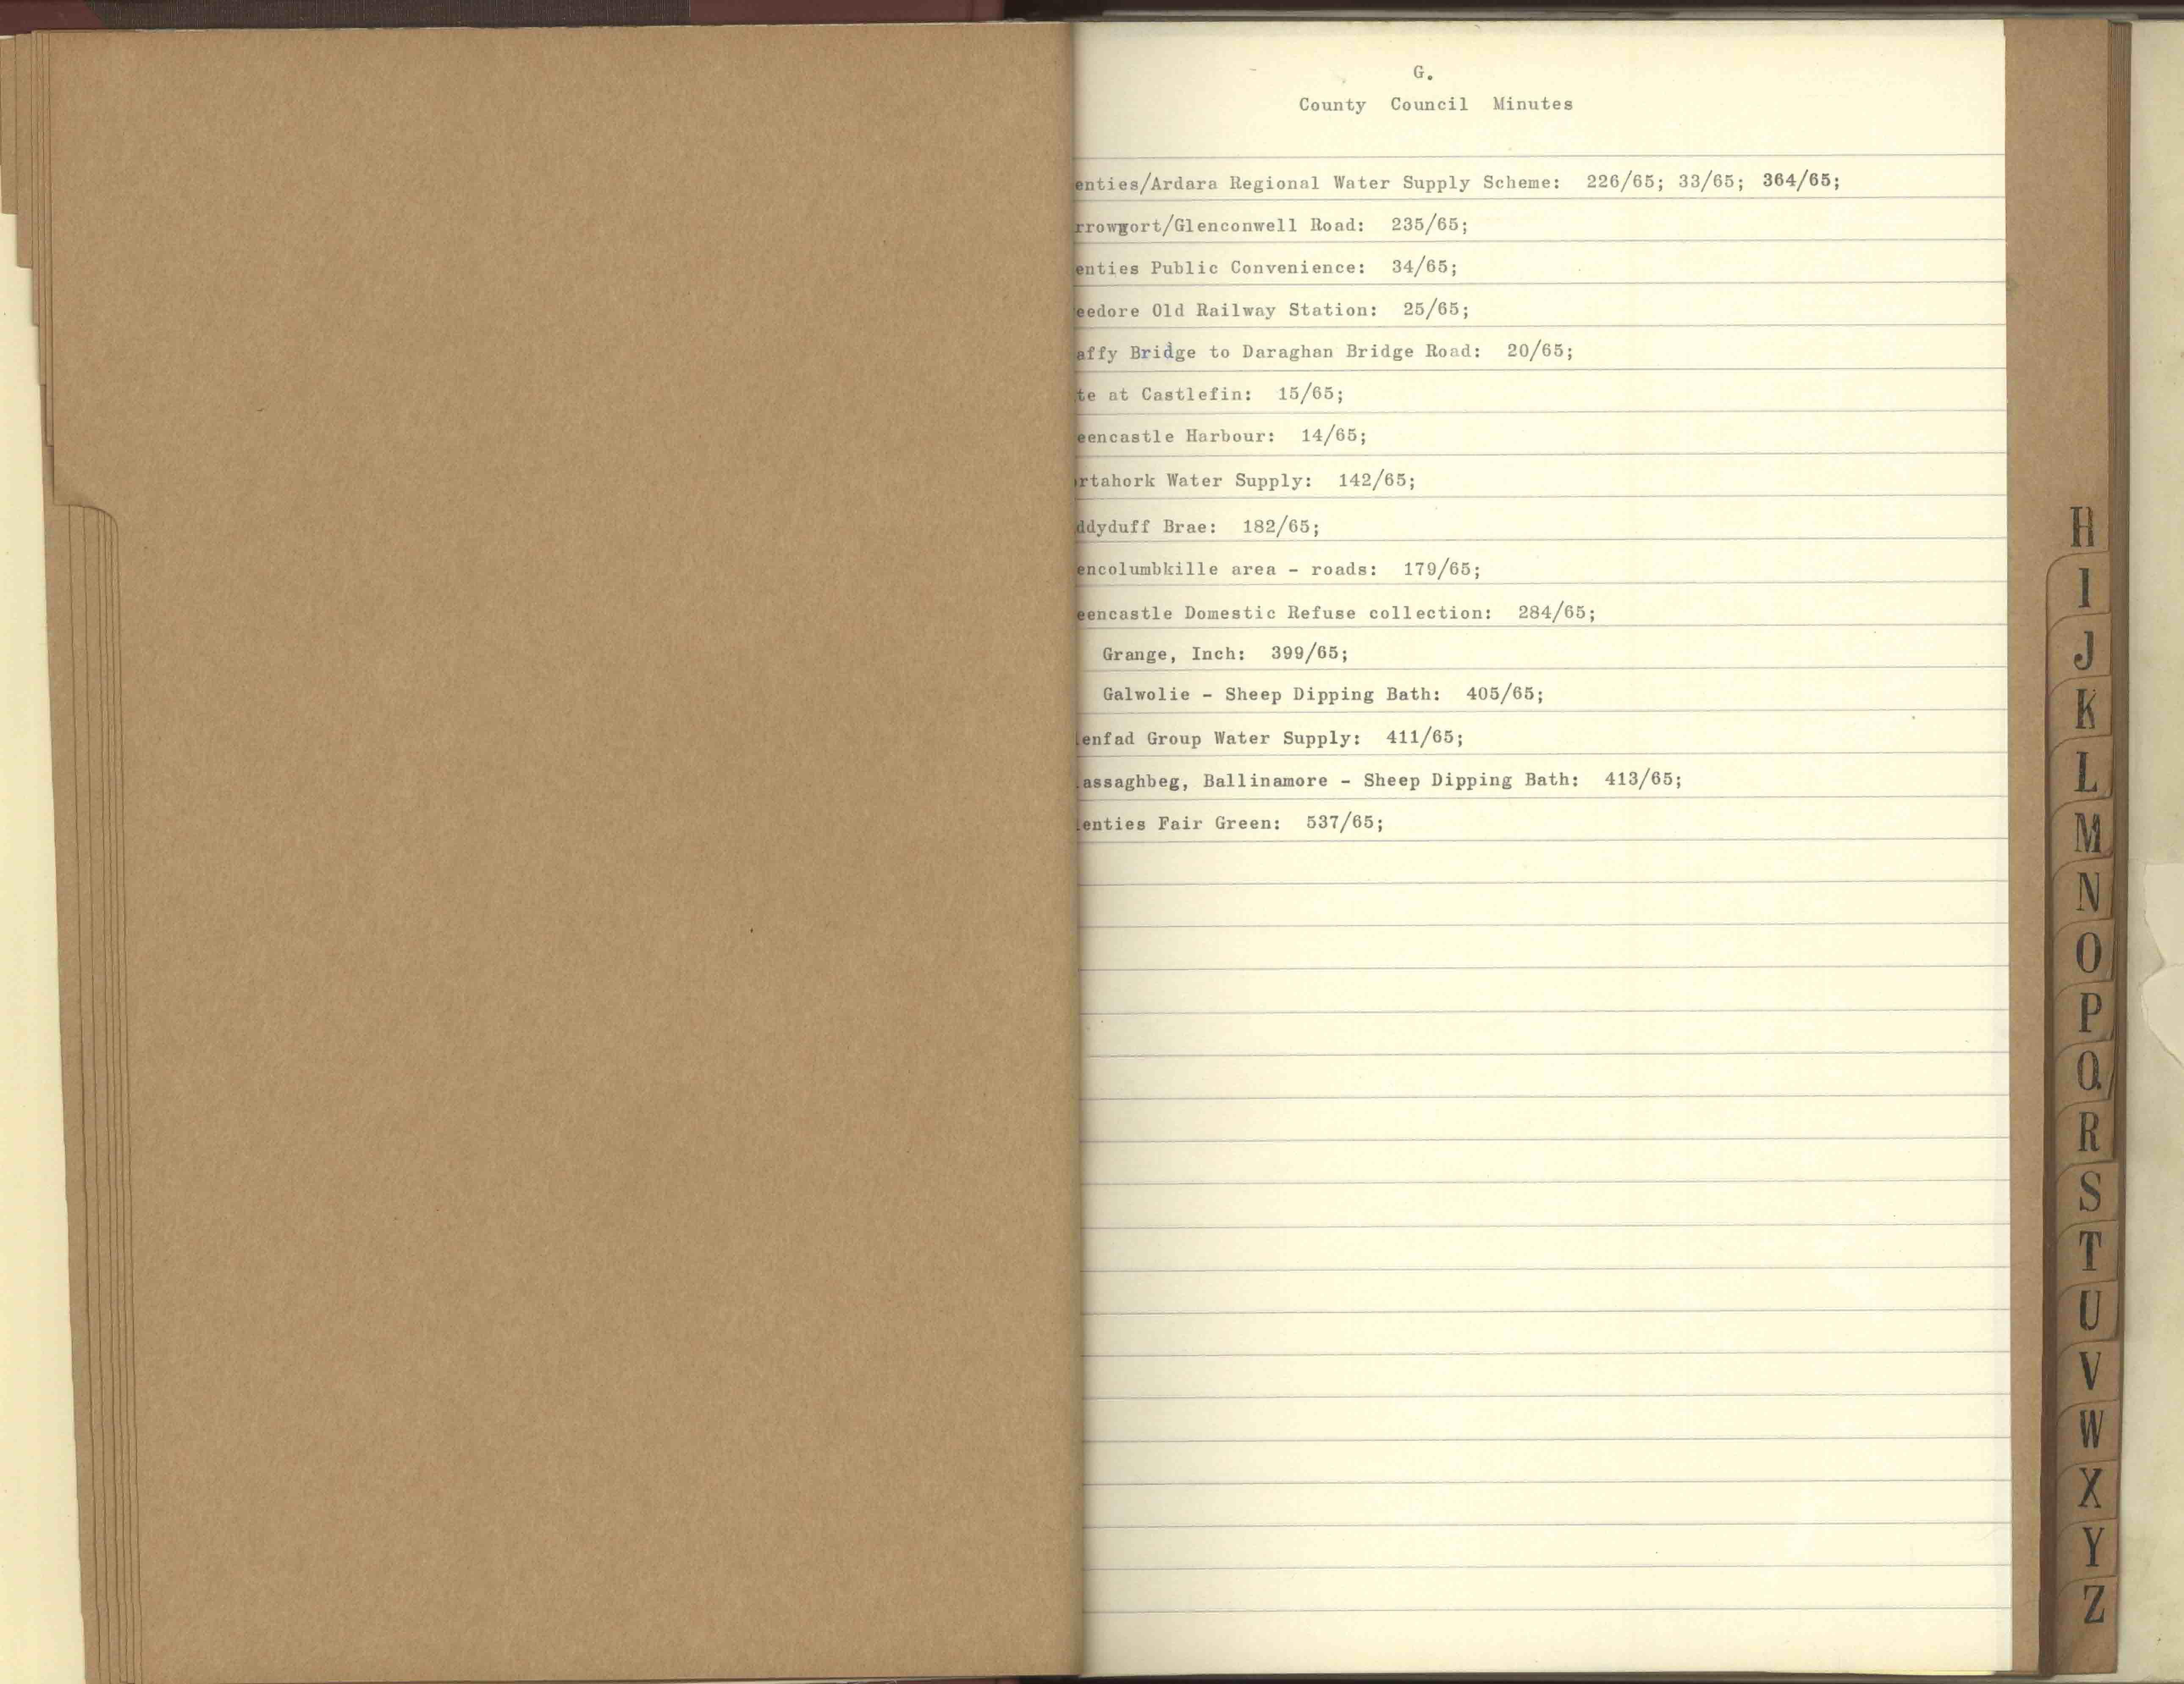 G.
County Council Minutes
enties/Ardara Regional Water Supply Scheme: 226/65; 33/65; 364/65;
rrowgort/Glenconwell Road: 235/65;
enties Public Convenience: 34/65;
eedore Old Railway Station: 25/65;
affy Bridge to Daraghan Bridge Road: 20/65;
te at Castlefin: 15/65;
eencastle Harbour: 14/65;
rtahork Water Supply: 142/65;
ddyduff Brae: 182/65;
encolumbkille area - roads: 179/65;
eencastle Domestic Refuse collection: 284/65;
Grange, Inch: 399/65;
Galwolie - Sheep Dipping Bath: 405/65;
enfad Group Water Supply: 411/65;
assaghbeg, Ballinamore - Sheep Dipping Bath: 413/65;
enties Fair Green: 537/65;
H
I
J
K
L
M
N
O
P
Q
R
S
T
U
V
W
X
Y
Z